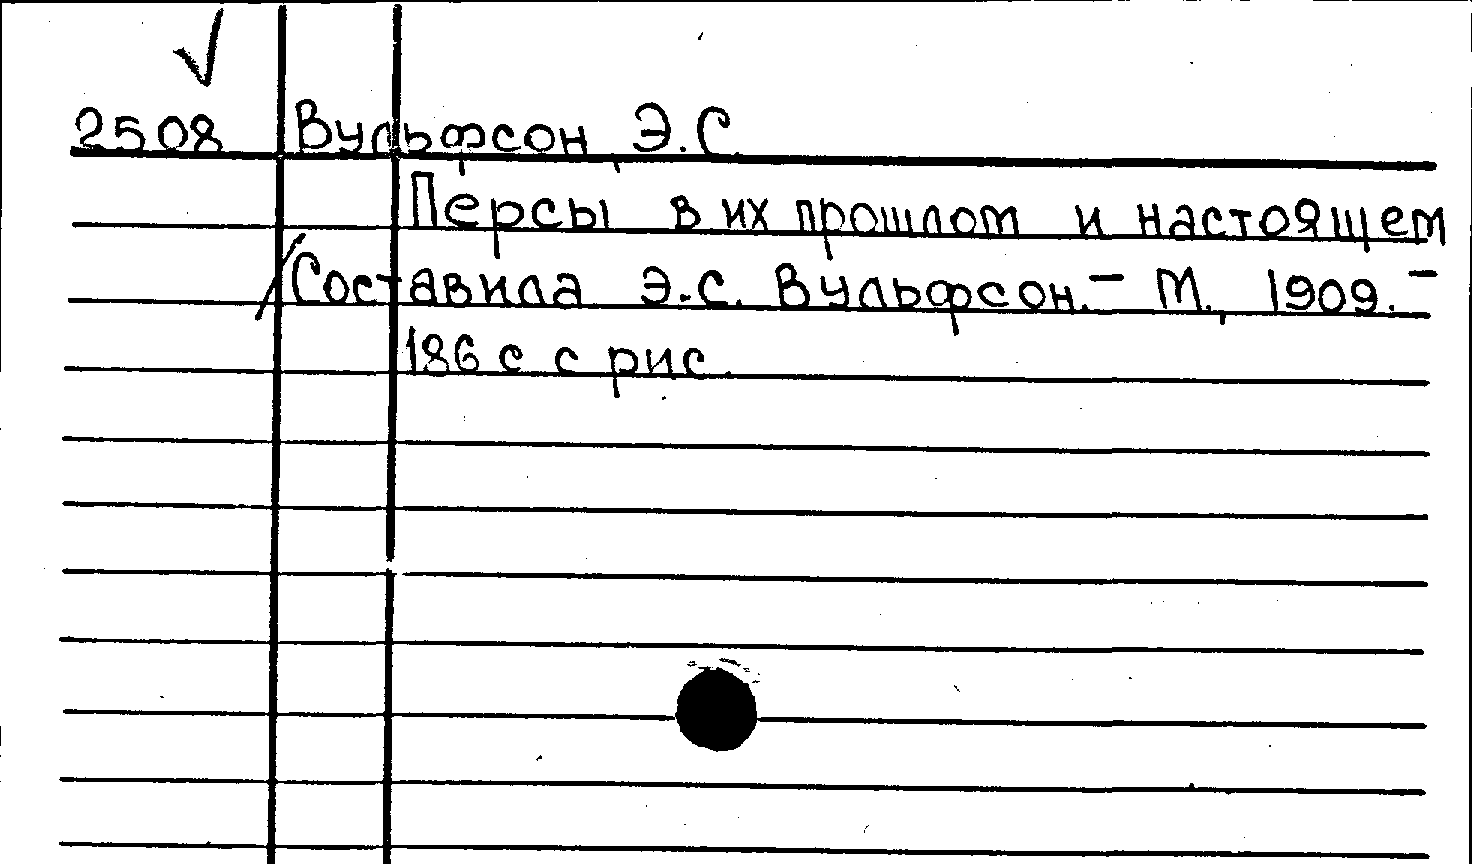 2508 Вульфсон, Э.С.
Персы в их прошлом и настоящем
/Составила Э.С. Вульфсон.- М., 1909.-
186 с с рис.